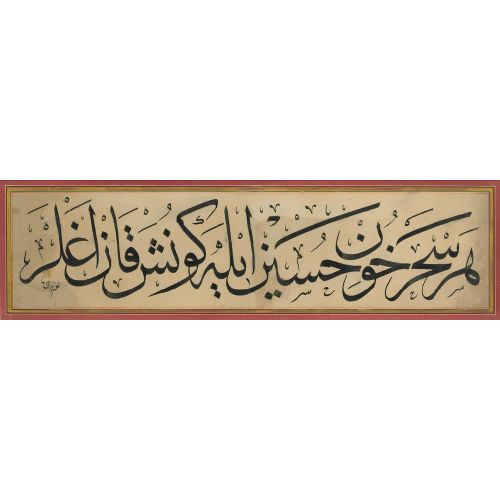 هر سحر خون حسین ایله کونش قان اغلر